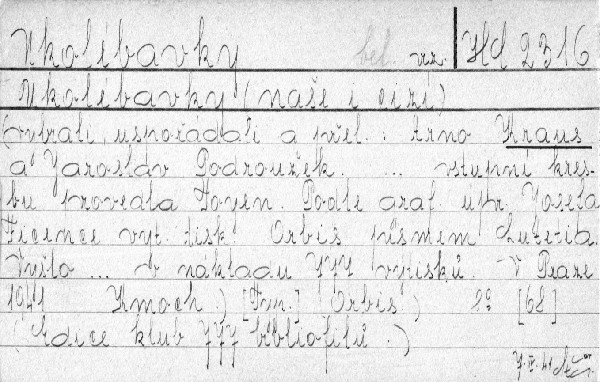 Ukolébavky bel. vz. Hd 2316
Ukolébavky (naše i cizí)
(vybrali, uspořádali a přel. : Arno Kraus
a Jaroslav Podroužek. ... vstupní kres-
bu provedla Toyen. Podle graf. úpr. Josefa
Ficence vyt. tisk. Orbis písmem Lutetia.
Vyšlo ... v nákladu 777 výtisků. V Praze
1941 Kmoch.) [Tyr.] Orbis) 8° [68]
(Edice klub 777 bibliofilů.)
7. IV. 41